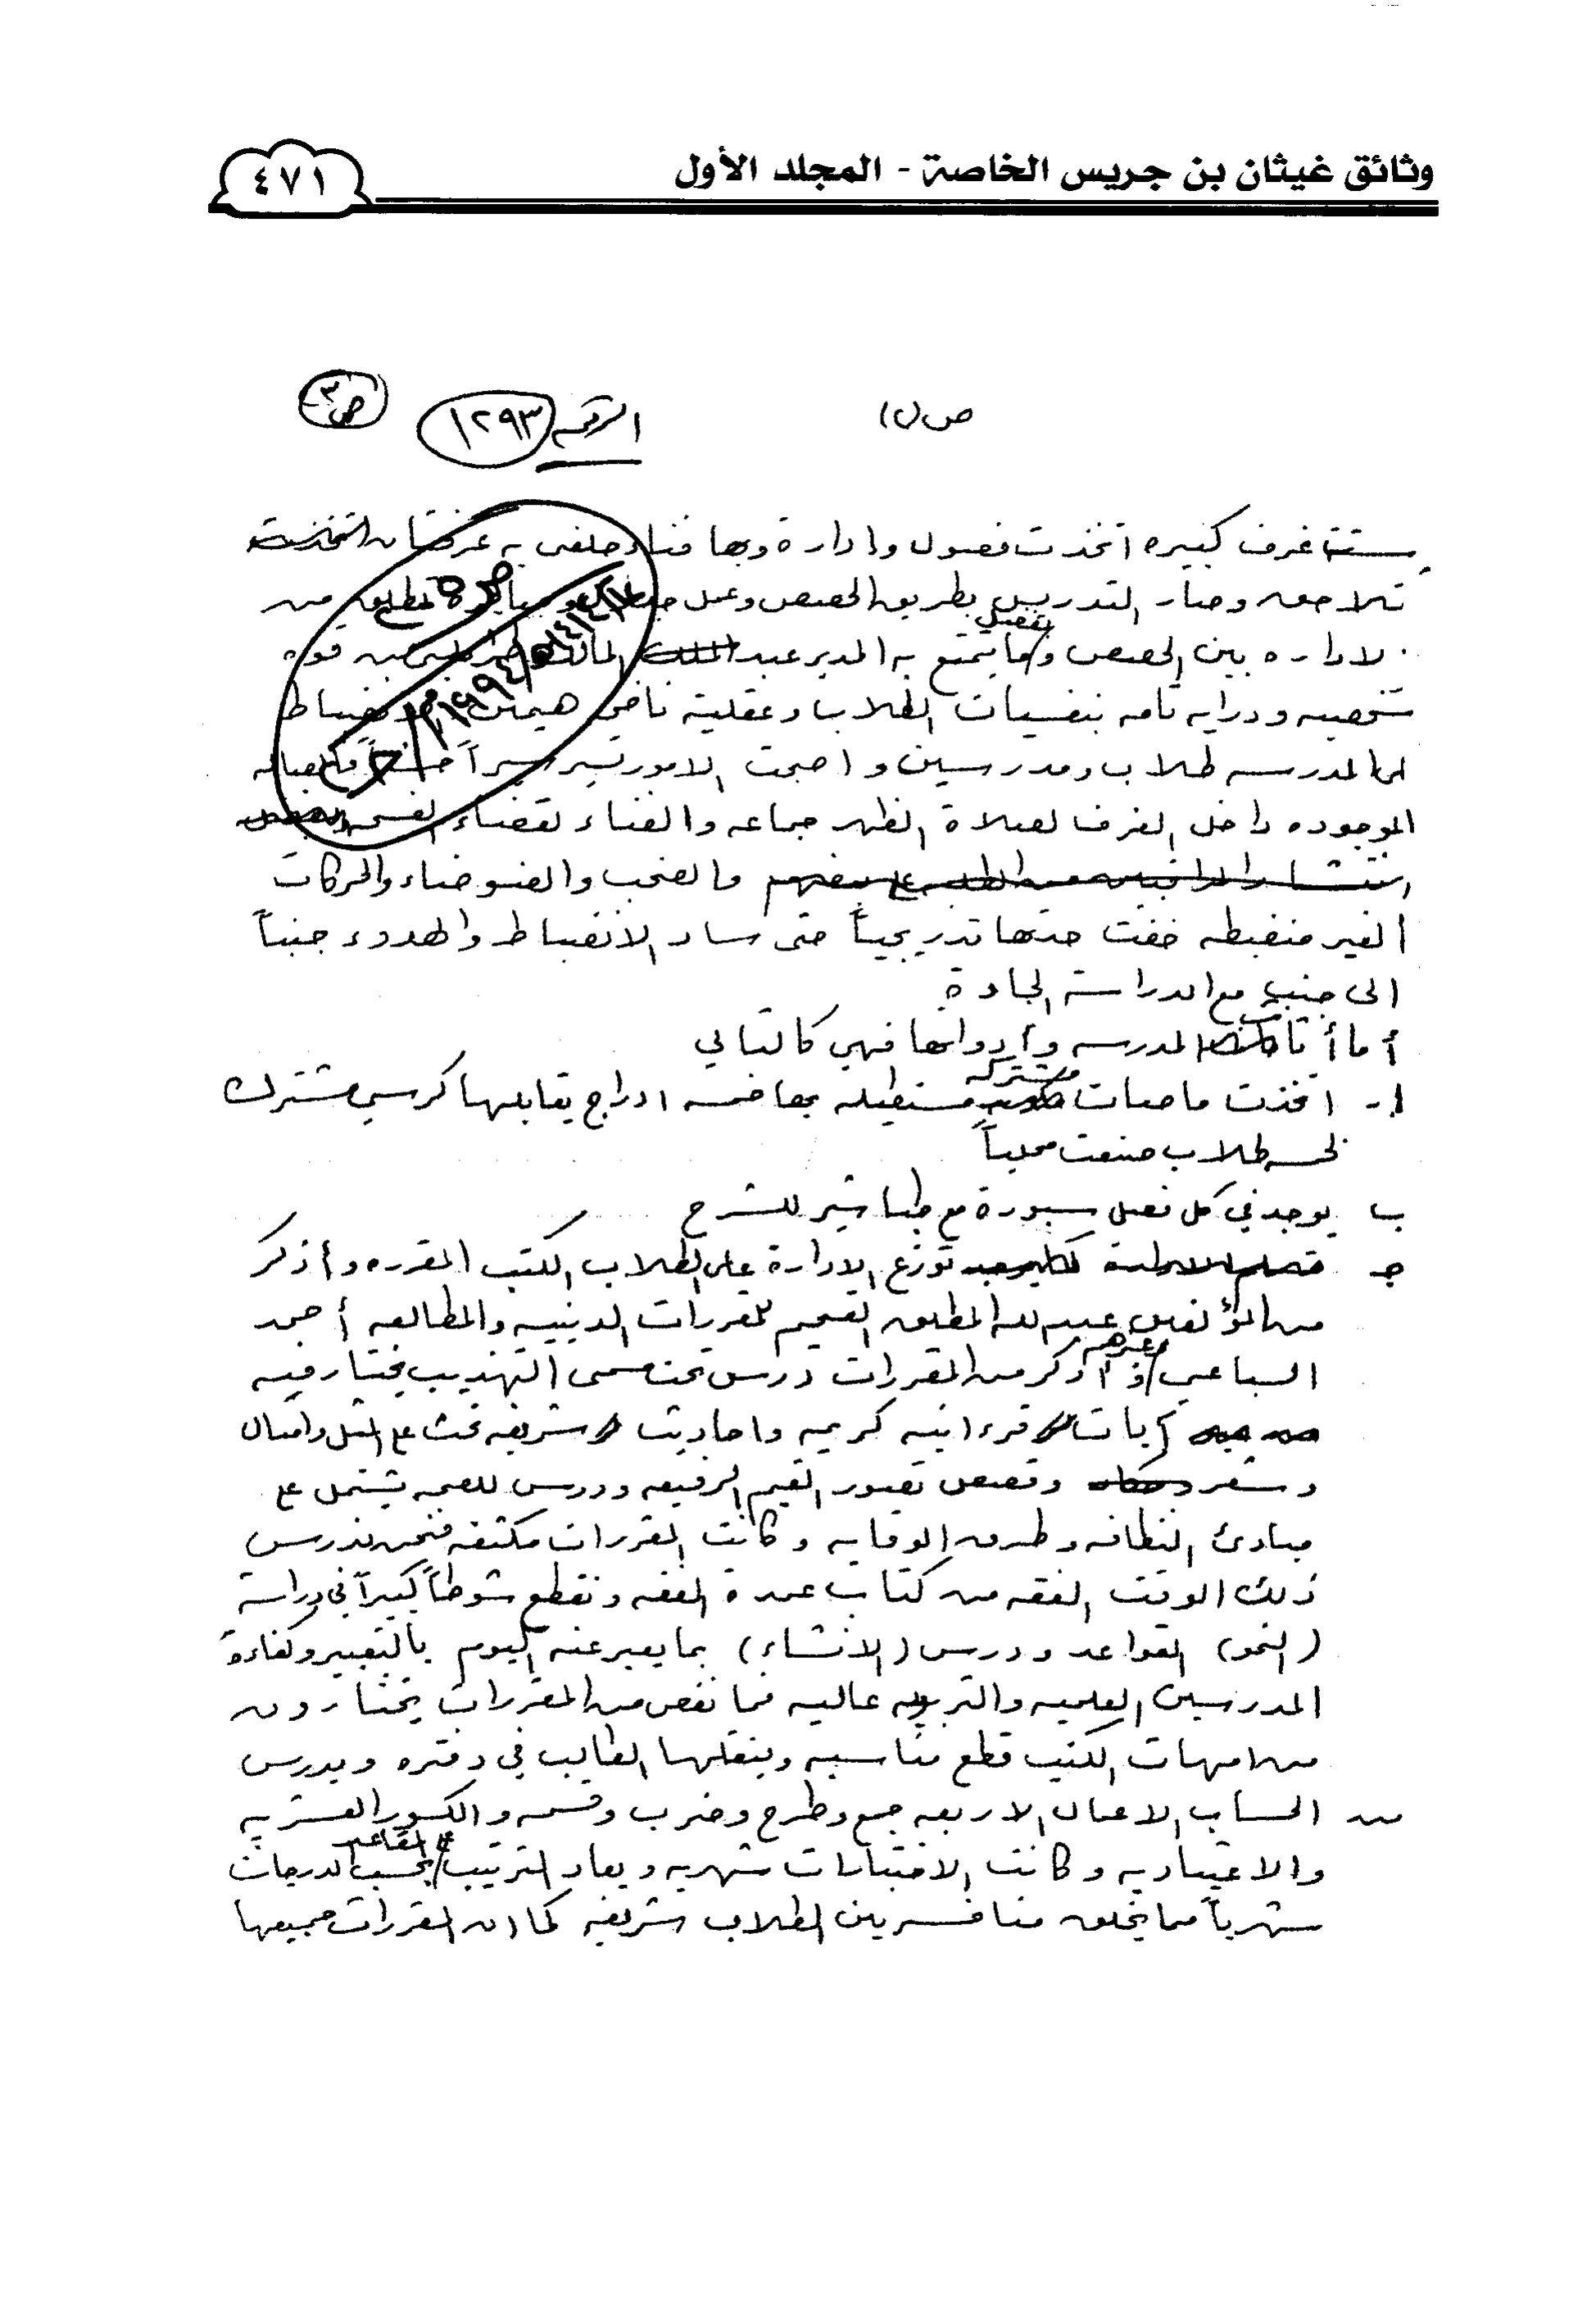 وثائق غيثان بن جريس الخاصة - المجلد الأول
٤٧١
ص ل١)
الرقم ١٢٩٣
ص٣
ستة غرف كبيره اتخذت فصول وإدارة وبها فناء خلفي به غرفتان اتخذت
تلاحق وصار التدريس بطريق الحصص وعمل من
لاداره بين الحصص وبفضل ما يتمتع به المدير عبد المالك من قوه
شخصيه ودرايه تامه بنفسيات الطلاب وعقلية
المدرسه طلاب ومدرسين واصبحت الامور تسير سيراً حسناً
الموجوده داخل الغرف لصلاة الظهر جماعه والفناء لقضاء الفسحه
فالصخب والضوضاء والحركات
الغير منضبطه خفت حدتها تدريجياً حتى ساد الانضباط والهدوء جنباً
الى جنب مع الدراسة الجادة
أما أثاث المدرسه وأدواتها فهي كالتالي
ا- اتخذت ماصات مشتركه مستطيله بها خمسه ادراج يقابلها كرسي مشترك
لخمسه طلاب صنعت محلياً
ب يوجد في كل فصل سبورة مع طباشير للشرح
جـ توزع الادارة على الطلاب الكتب المقرره وأذكر
من المؤلفين عبدالله المطلق الفهيم للمقررات الدينيه والمطالعه أحمد
السباعي وغيرهم وأذكر من المقررات درس تحت مسمى التهذيب يختار فيه
آيات قرءانيه كريمه واحاديث شريفه تحث على المثل وامثال
وشعر وقصص تصور القيم الرفيعه ودروس للصحه تشتمل على
مبادئ النظافه وطرق الوقايه وكانت المقررات مكثفه فنحن ندرس
ذلك الوقت الفقه من كتاب عمدة الفقه ونقطع شوطاً كبيراً في دراسة
(النحو) القواعد ودرس (الانشاء) بما يعبر عنه اليوم بالتعبير وكفاءة
المدرسين العلميه والتربويه عاليه فما نقص من المقررات يختارون
من امهات الكتب قطع مناسبه وينقلها الطالب في دفتره ويدرس
من الحساب الاعمال الاربعه جمع وطرح وضرب وقسمه والكسور العشريه
والاعتياديه وكانت الاختبارات شهريه ويعاد الترتيب في المقاعد بحسب الدرجات
شهرياً مما يخلق منافسه بين الطلاب شريفه كما ان المقررات جميعها